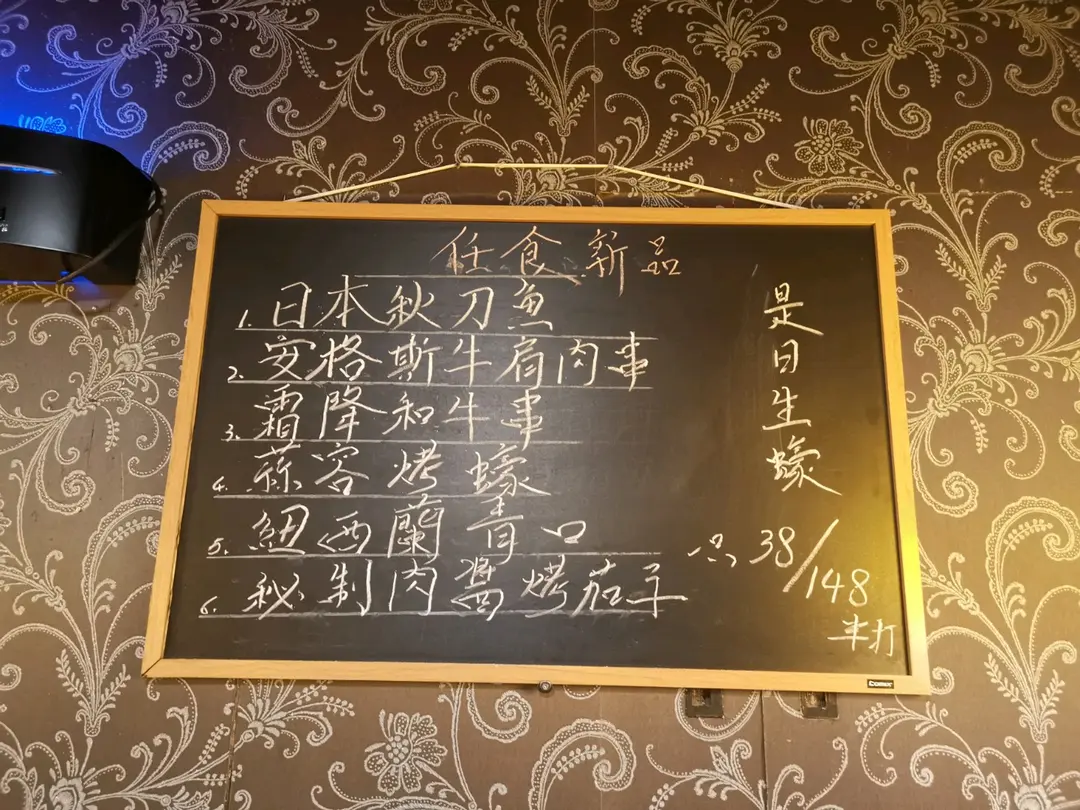 任食新品
1. 日本秋刀魚
2. 安格斯牛肩肉串
3. 霜降和牛串
4. 蒜容烤蠔
5. 紐西蘭青口
6. 秘制肉醬烤茄子
是日生蠔
一只38/148
半打
Comix